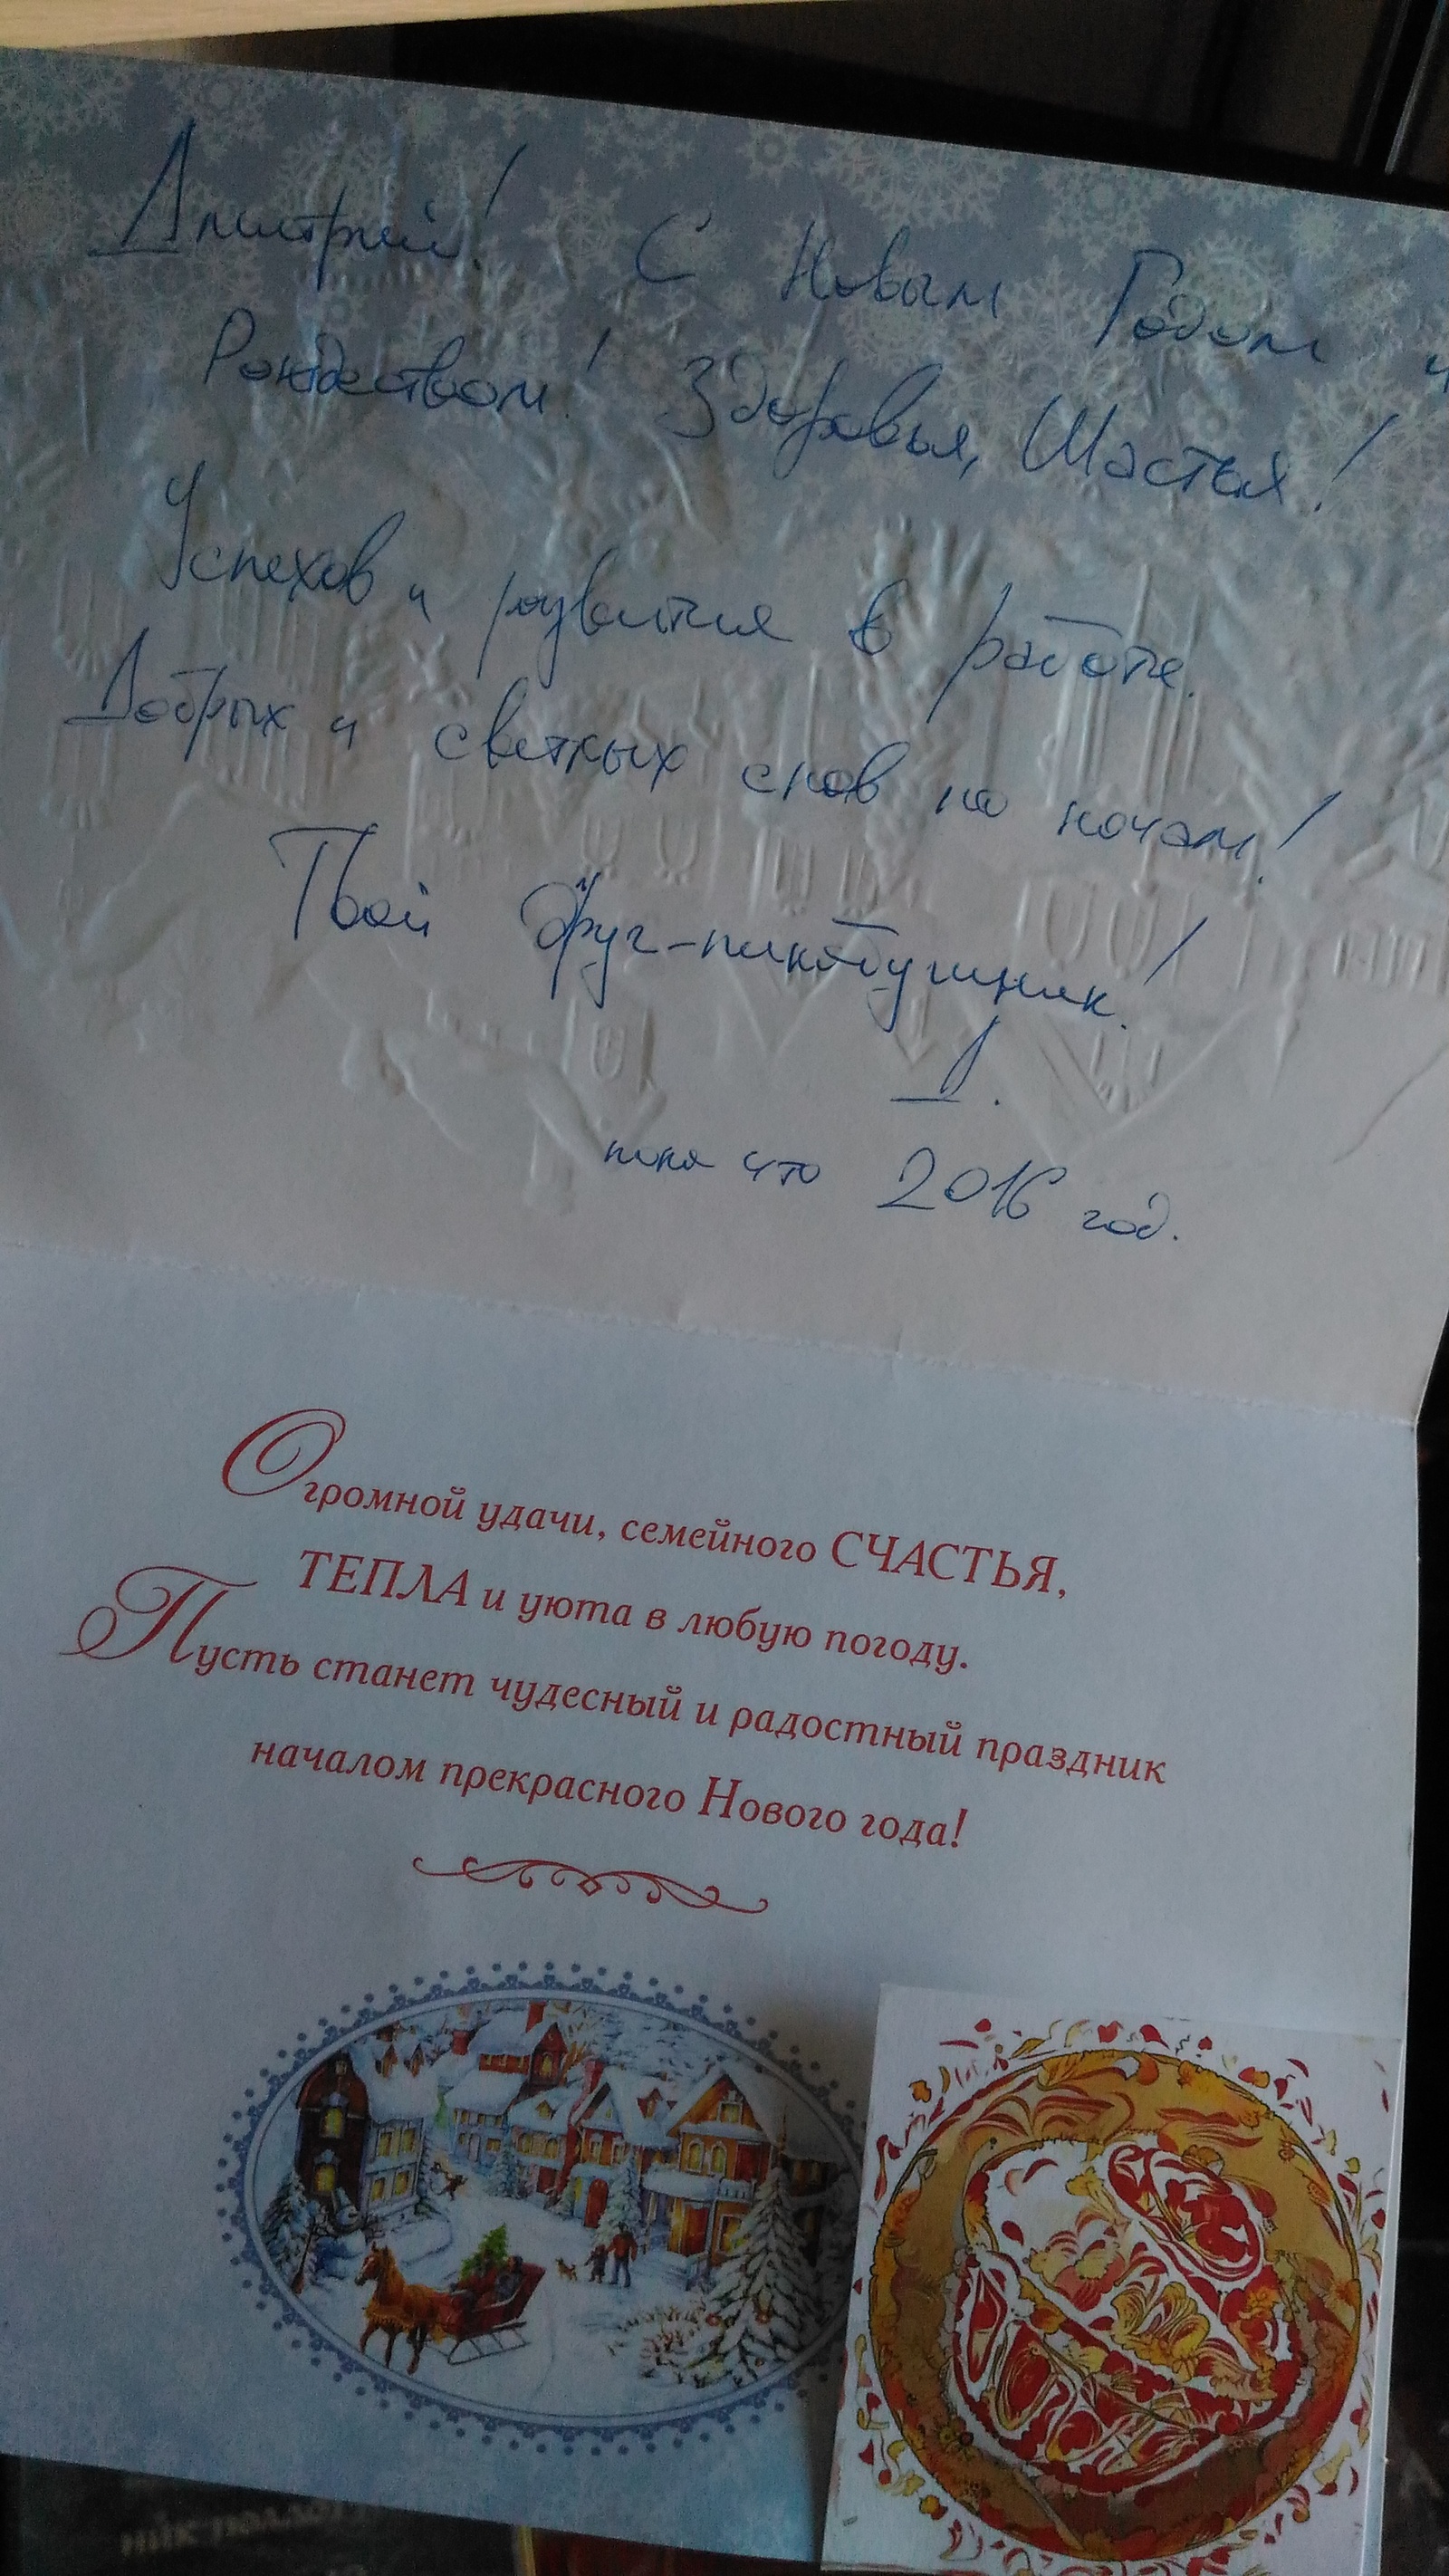 Дмитрий! С Новым Годом и
Рождеством! Здоровья, Щастья!
Успехов и развития в работе.
Добрых и светлых снов по ночам!
Твой друг-пикабушник!
Д.
пока что 2016 год.
Огромной удачи, семейного СЧАСТЬЯ,
ТЕПЛА и уюта в любую погоду.
Пусть станет чудесный и радостный праздник
началом прекрасного Нового года!